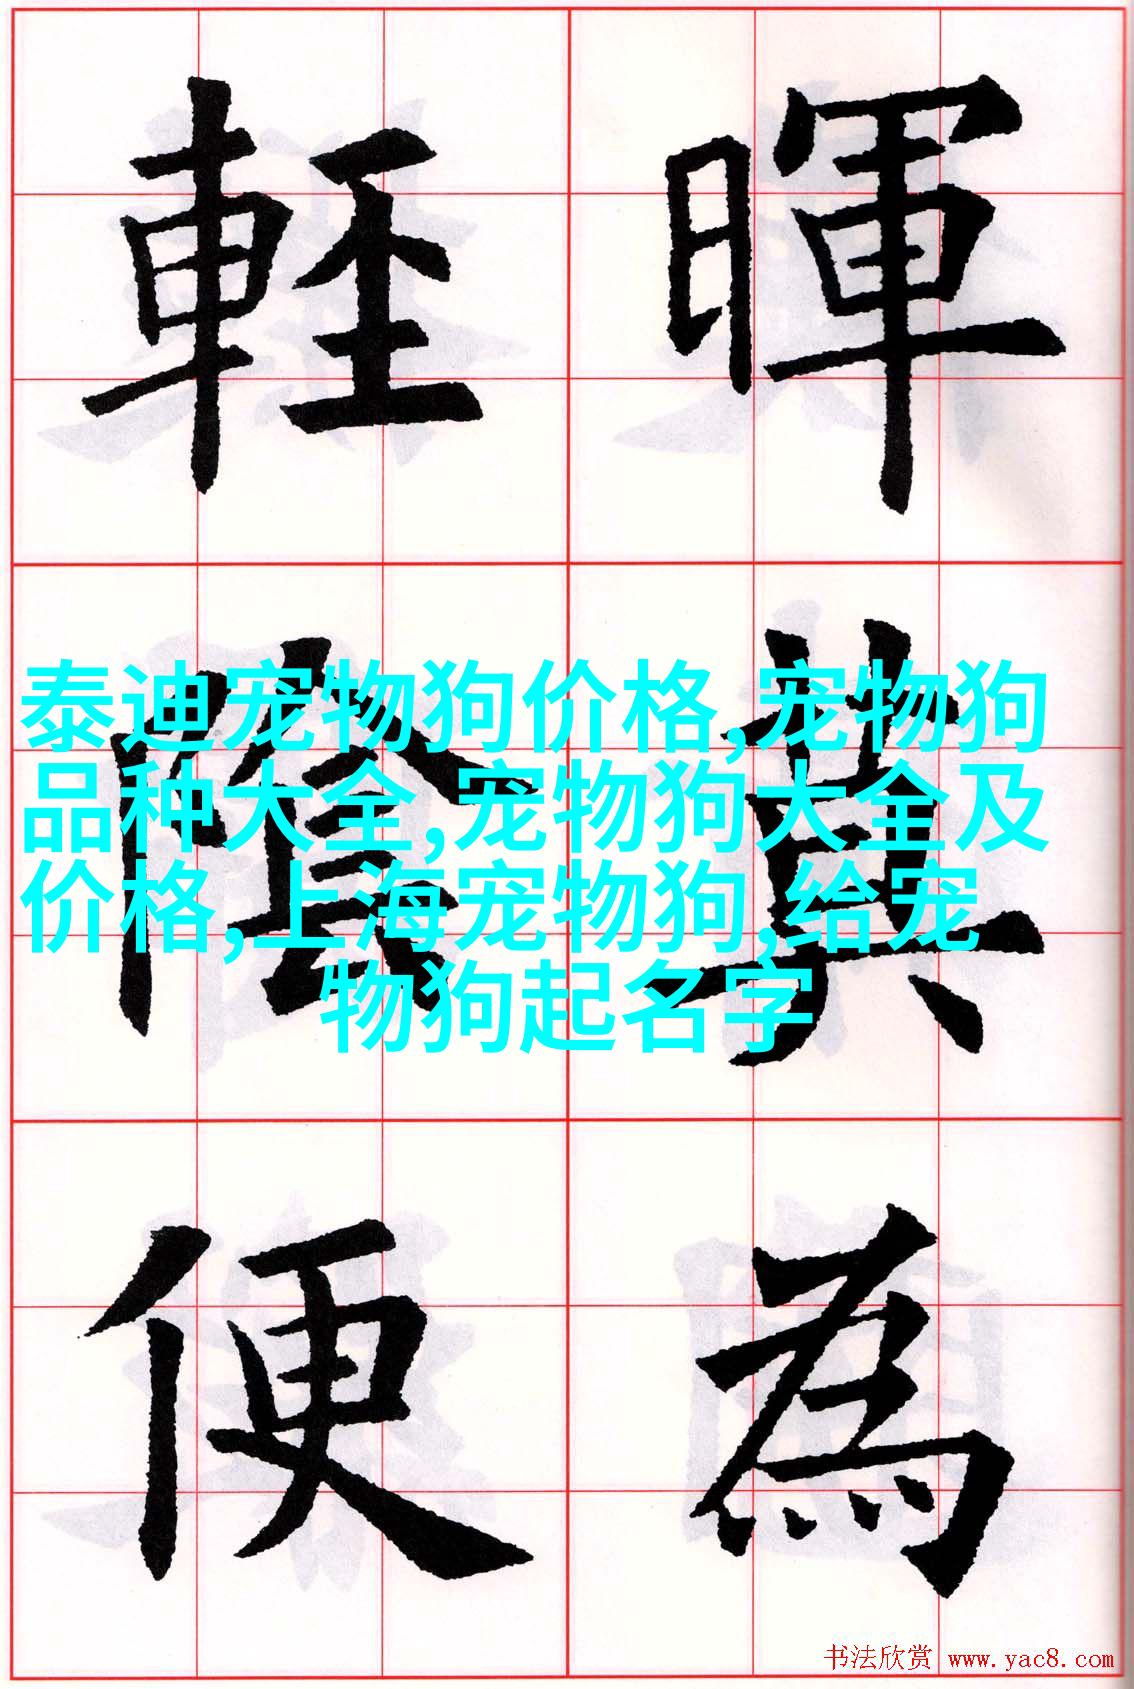 暉莫為
輕陰便
泰迪宠物狗价格,宠物狗
品种大全,宠物狗大全及
价格,上海宠物狗,给宠
物狗起名字
书法欣赏 www.yac8.com